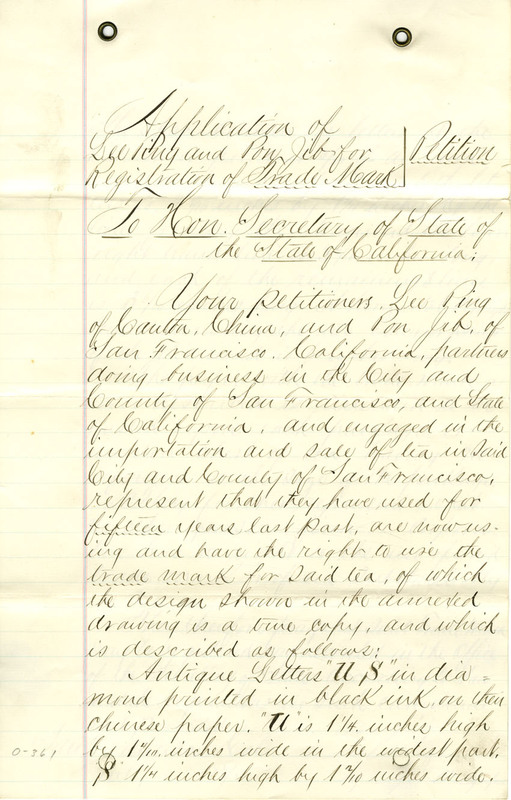 Application of
Lee Ring and Pon Jib for
Registration of Trade Mark
Petition
To Hon. Secretary of State of
the State of California:
Your petitioners, Lee Ring
of Canton, China, and Pon Jib, of
San Francisco, California, partners
doing business in the City and
County of San Francisco, and State
of California, and engaged in the
importation and sale of tea in said
City and County of San Francisco,
represent that they have used for
fifteen years last past, are now us-
ing and have the right to use the
trade mark for said tea, of which
the design shown in the annexed
drawing is a true copy, and which
is described as follows:
Antique Letters "U S" in dia=
mond printed in black ink, on then
chinese paper. "U is 1 1/4 inches high
by 1 7/10 inches wide in the widest part.
S 1 1/4 inches high by 1 2/10 inches wide.
0-361